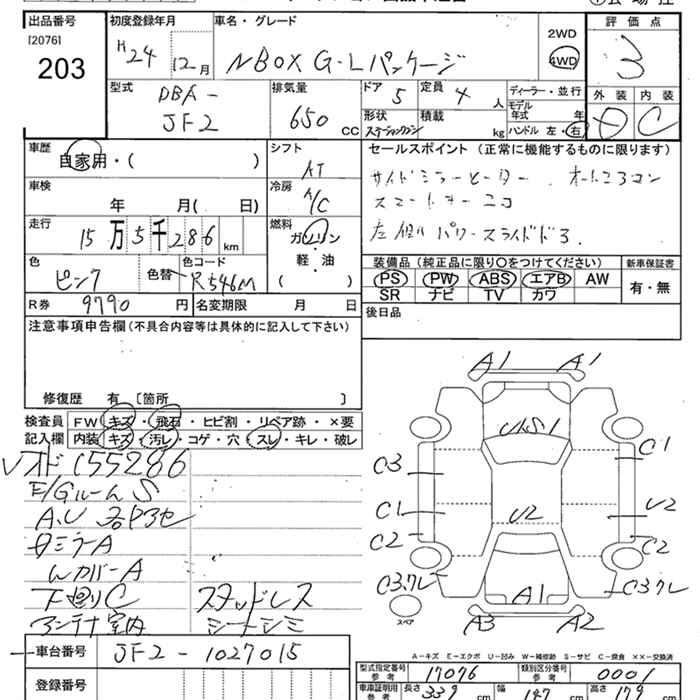 出品番号 初度登録年月 車名・グレード 評価点
[2076]
203
H24 12月 NBOX G-Lパッケージ 2WD 4WD 3
型式 排気量 ドア 5 定員 4 人 ディーラー・並行 外装 内装
DBA- モデル年式 年
JF2 650 CC 形状 ステーションワゴン 積載 kg ハンドル 左・右 D C
車歴 シフト セールスポイント (正常に機能するものに限ります)
自家用・( ) AT サイドミラーヒーター オートエアコン
車検 冷房 スマートキー
年 月( 日) A/C 左側パワースライドドア
走行 燃料
15万5千286km ガソリン
軽・油
色 色替 色コード ( ) 装備品 (純正品に限り○をつけてください) 新車保証書
ピンク R546M PS PW ABS エアB AW 有・無
R券 9790円 名変期限 月 日 SR ナビ TV カワ
注意事項申告欄 (不具合内容等は具体的に記入して下さい) 後日品
修復歴 有 [箇所 ]
検査員 FW キズ・飛石・ヒビ割・リペア跡・×要
記入欄 内装 キズ・汚レ・コゲ・穴・スレ・キレ・破レ
オド155286
E/GルームS
下廻りC スタッドレス
アンテナ室内 シートシミ
A1 A1
C3 C1
C1 U2 U2
C2 C2
C3クレ C3クレ
A1
スペア A3 A2
A-キズ E-エクボ U-凹み W-補修跡 S-サビ C-腐食 XX-交換済
車台番号 JF2-1027015
登録番号
型式指定番号 参考 17076 類別区分番号 参考 0001
車庫証明用 参考 長さ 339 cm 幅 147 cm 高さ 179 cm